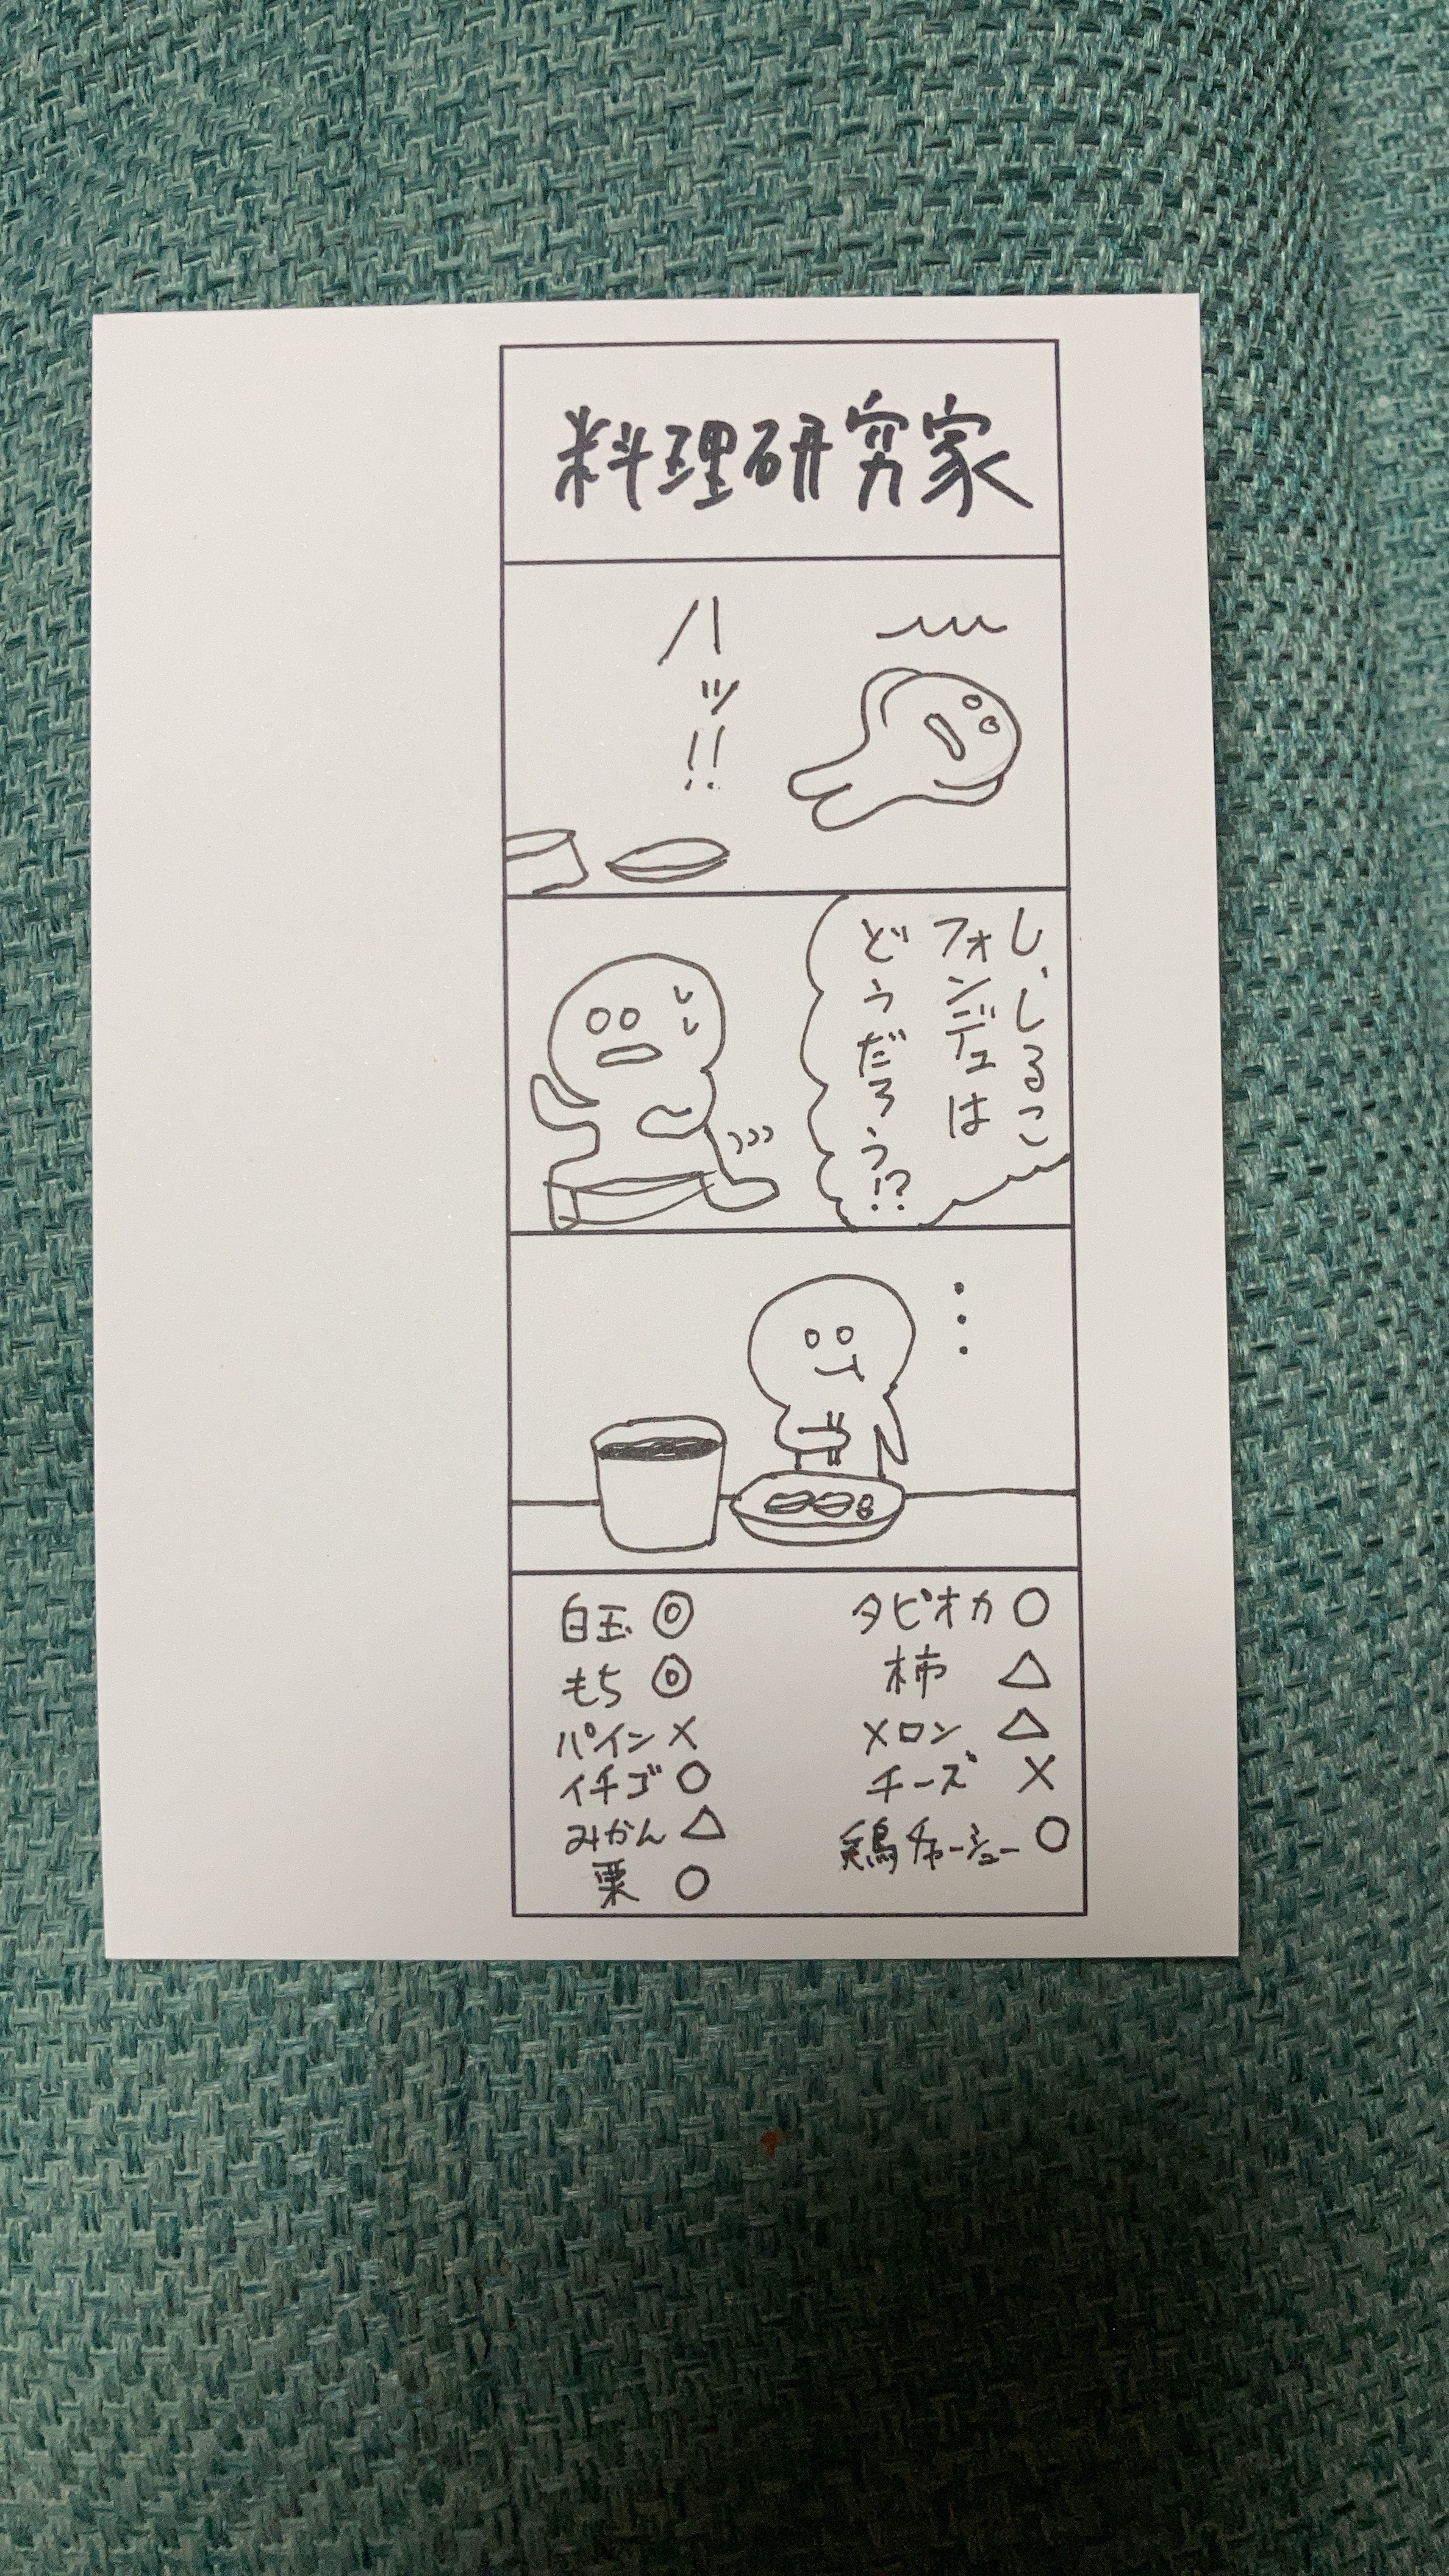 料理研究家
ハッ!!
し、しるこ
フォンデュは
どうだろう!?
白玉 ◎
もち ◎
パイン ×
イチゴ ○
みかん △
栗 ○
タピオカ ○
柿 △
メロン △
チーズ ×
鶏チャーシュー ○